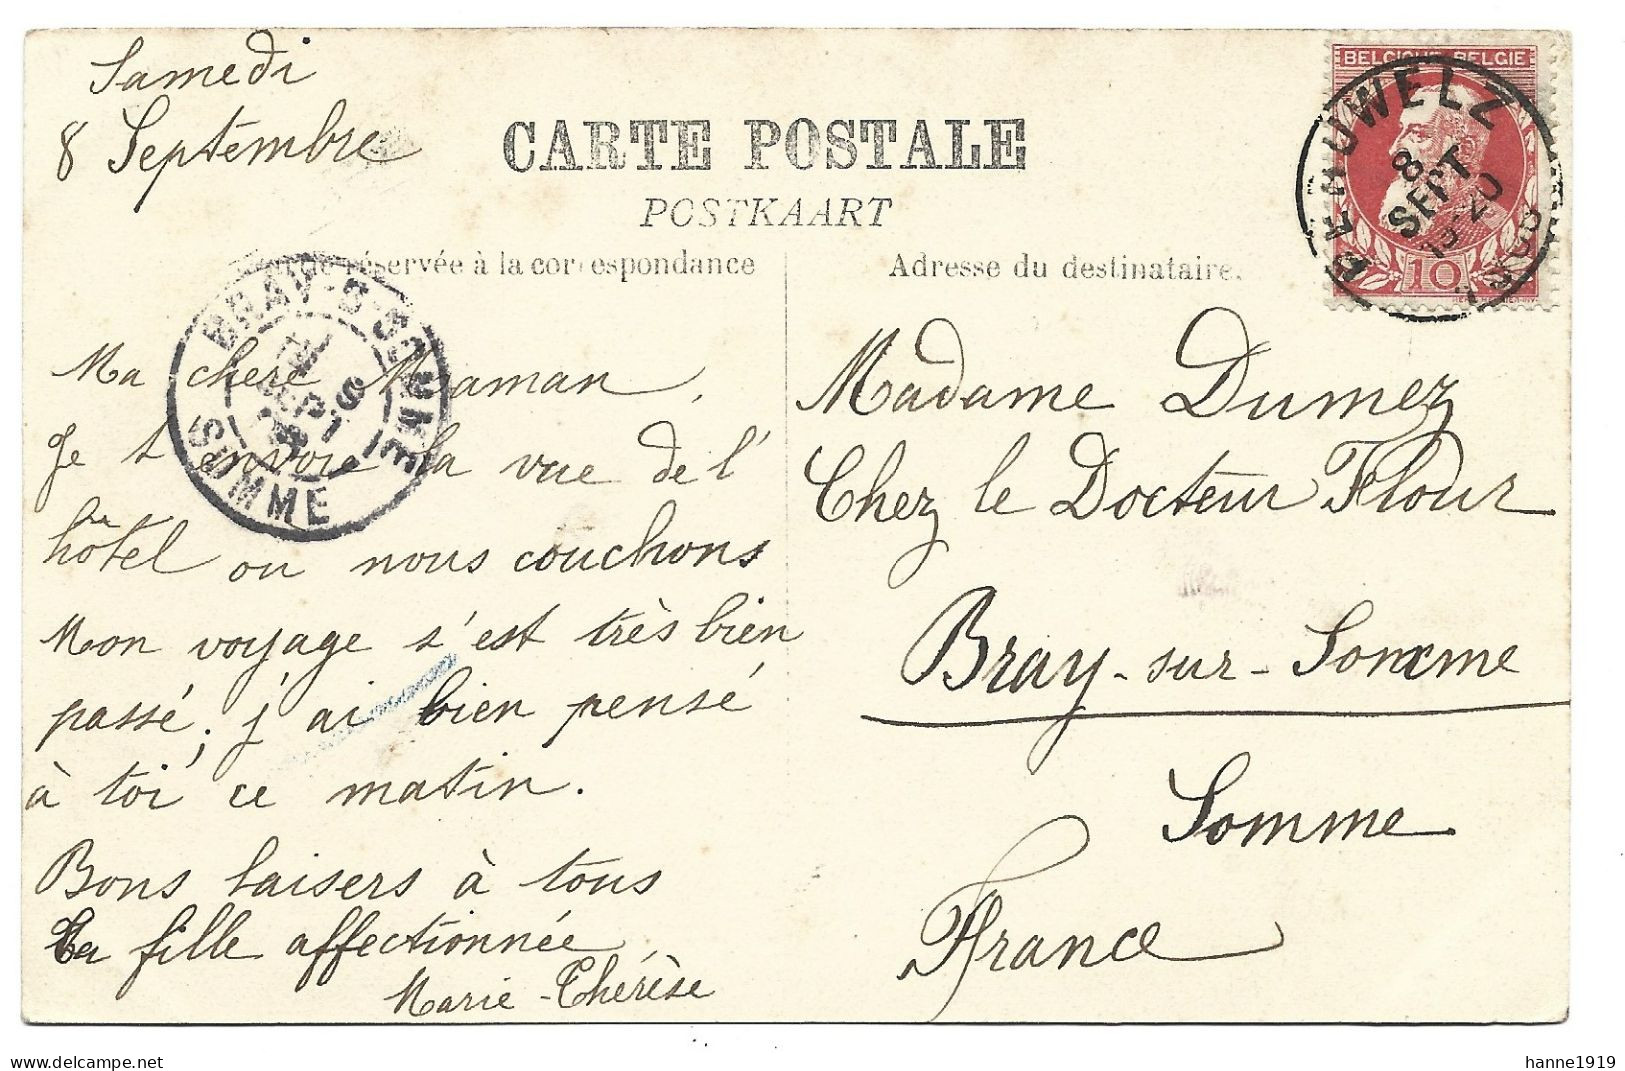 Samedi
8 Septembre
CARTE POSTALE
POSTKAART
réservée à la correspondance
Adresse du destinataire.
BELGIQUE BELGIE
10
PERUWELZ
8
SEPT
1906
BRAY-S-SOMME
SOMME
Ma chere Maman,
Je t'envoie la vue de l'
hôtel ou nous couchons
Mon voyage s'est très bien
passé, j'ai bien pensé
à toi ce matin.
Bons baisers à tous
Ta fille affectionnée
Marie-Thérèse
Madame Dumez
Chez le Docteur Flour
Bray-sur-Somme
Somme
France
delcampe.net
hanne1919